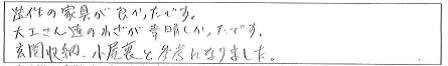 造作の家具が良かったです。
大工さん達のわざが素晴しかったです。
玄関収納、小屋裏と参考になりました。